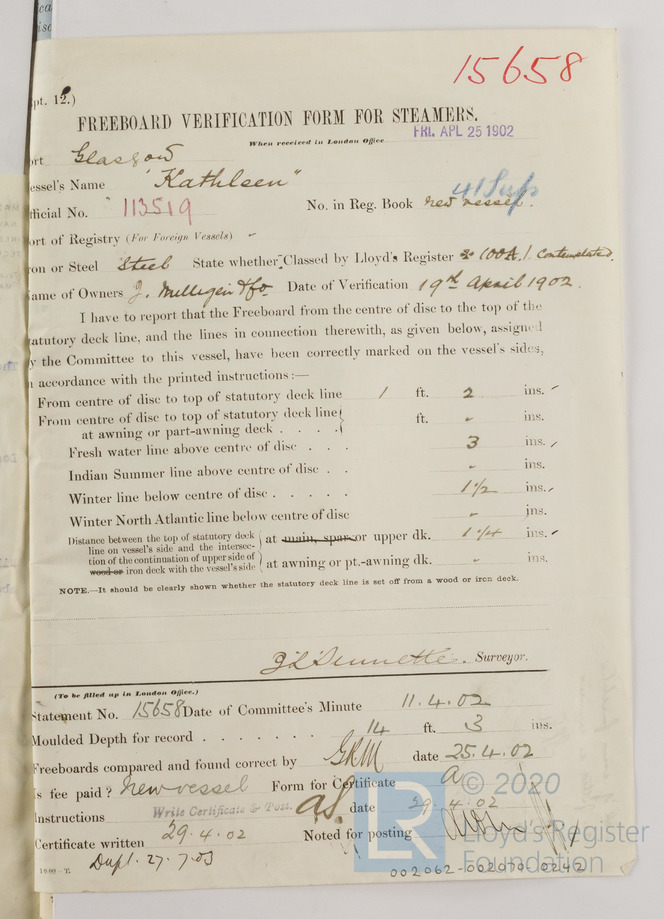 15658
pt. 12.)
FREEBOARD VERIFICATION FORM FOR STEAMERS.
When received in London Office FRI. APL 25 1902
ort Glasgow
essel's Name "Kathleen"
fficial No. 113519 No. in Reg. Book new vessel. 41 Sup
ort of Registry (For Foreign Vessels) -
ron or Steel Steel State whether Classed by Lloyd's Register 100A.1 Contemplated
ame of Owners J. Milligen & Co Date of Verification 19th April 1902.
I have to report that the Freeboard from the centre of disc to the top of the
tatutory deck line, and the lines in connection therewith, as given below, assigned
y the Committee to this vessel, have been correctly marked on the vessel's sides,
n accordance with the printed instructions:—
From centre of disc to top of statutory deck line 1 ft. 2 ins.
From centre of disc to top of statutory deck line
at awning or part-awning deck . . . . ft. - ins.
Fresh water line above centre of disc . . . 3 ins.
Indian Summer line above centre of disc . . - ins.
Winter line below centre of disc . . . . . 1 1/2 ins.
Winter North Atlantic line below centre of disc - ins.
Distance between the top of statutory deck
line on vessel's side and the intersec-
tion of the continuation of upper side of
wood or iron deck with the vessel's side
at main, spar or upper dk. 1 3/4 ins.
at awning or pt.-awning dk. - ins.
NOTE.—It should be clearly shown whether the statutory deck line is set off from a wood or iron deck.
J L Dunnette. Surveyor.
(To be filled up in London Office.)
Statement No. 15658 Date of Committee's Minute 11.4.02
Moulded Depth for record . . . . . . . 14 ft. 3 ins.
Freeboards compared and found correct by GRM date 25.4.02
Is fee paid? New vessel Form for Certificate A
Instructions Write Certificate & Post. date 29.4.02
Certificate written 29.4.02 Noted for posting
Dupl. 27.7.03
© 2020
LR Lloyd's Register
Foundation
002062-002070-0242